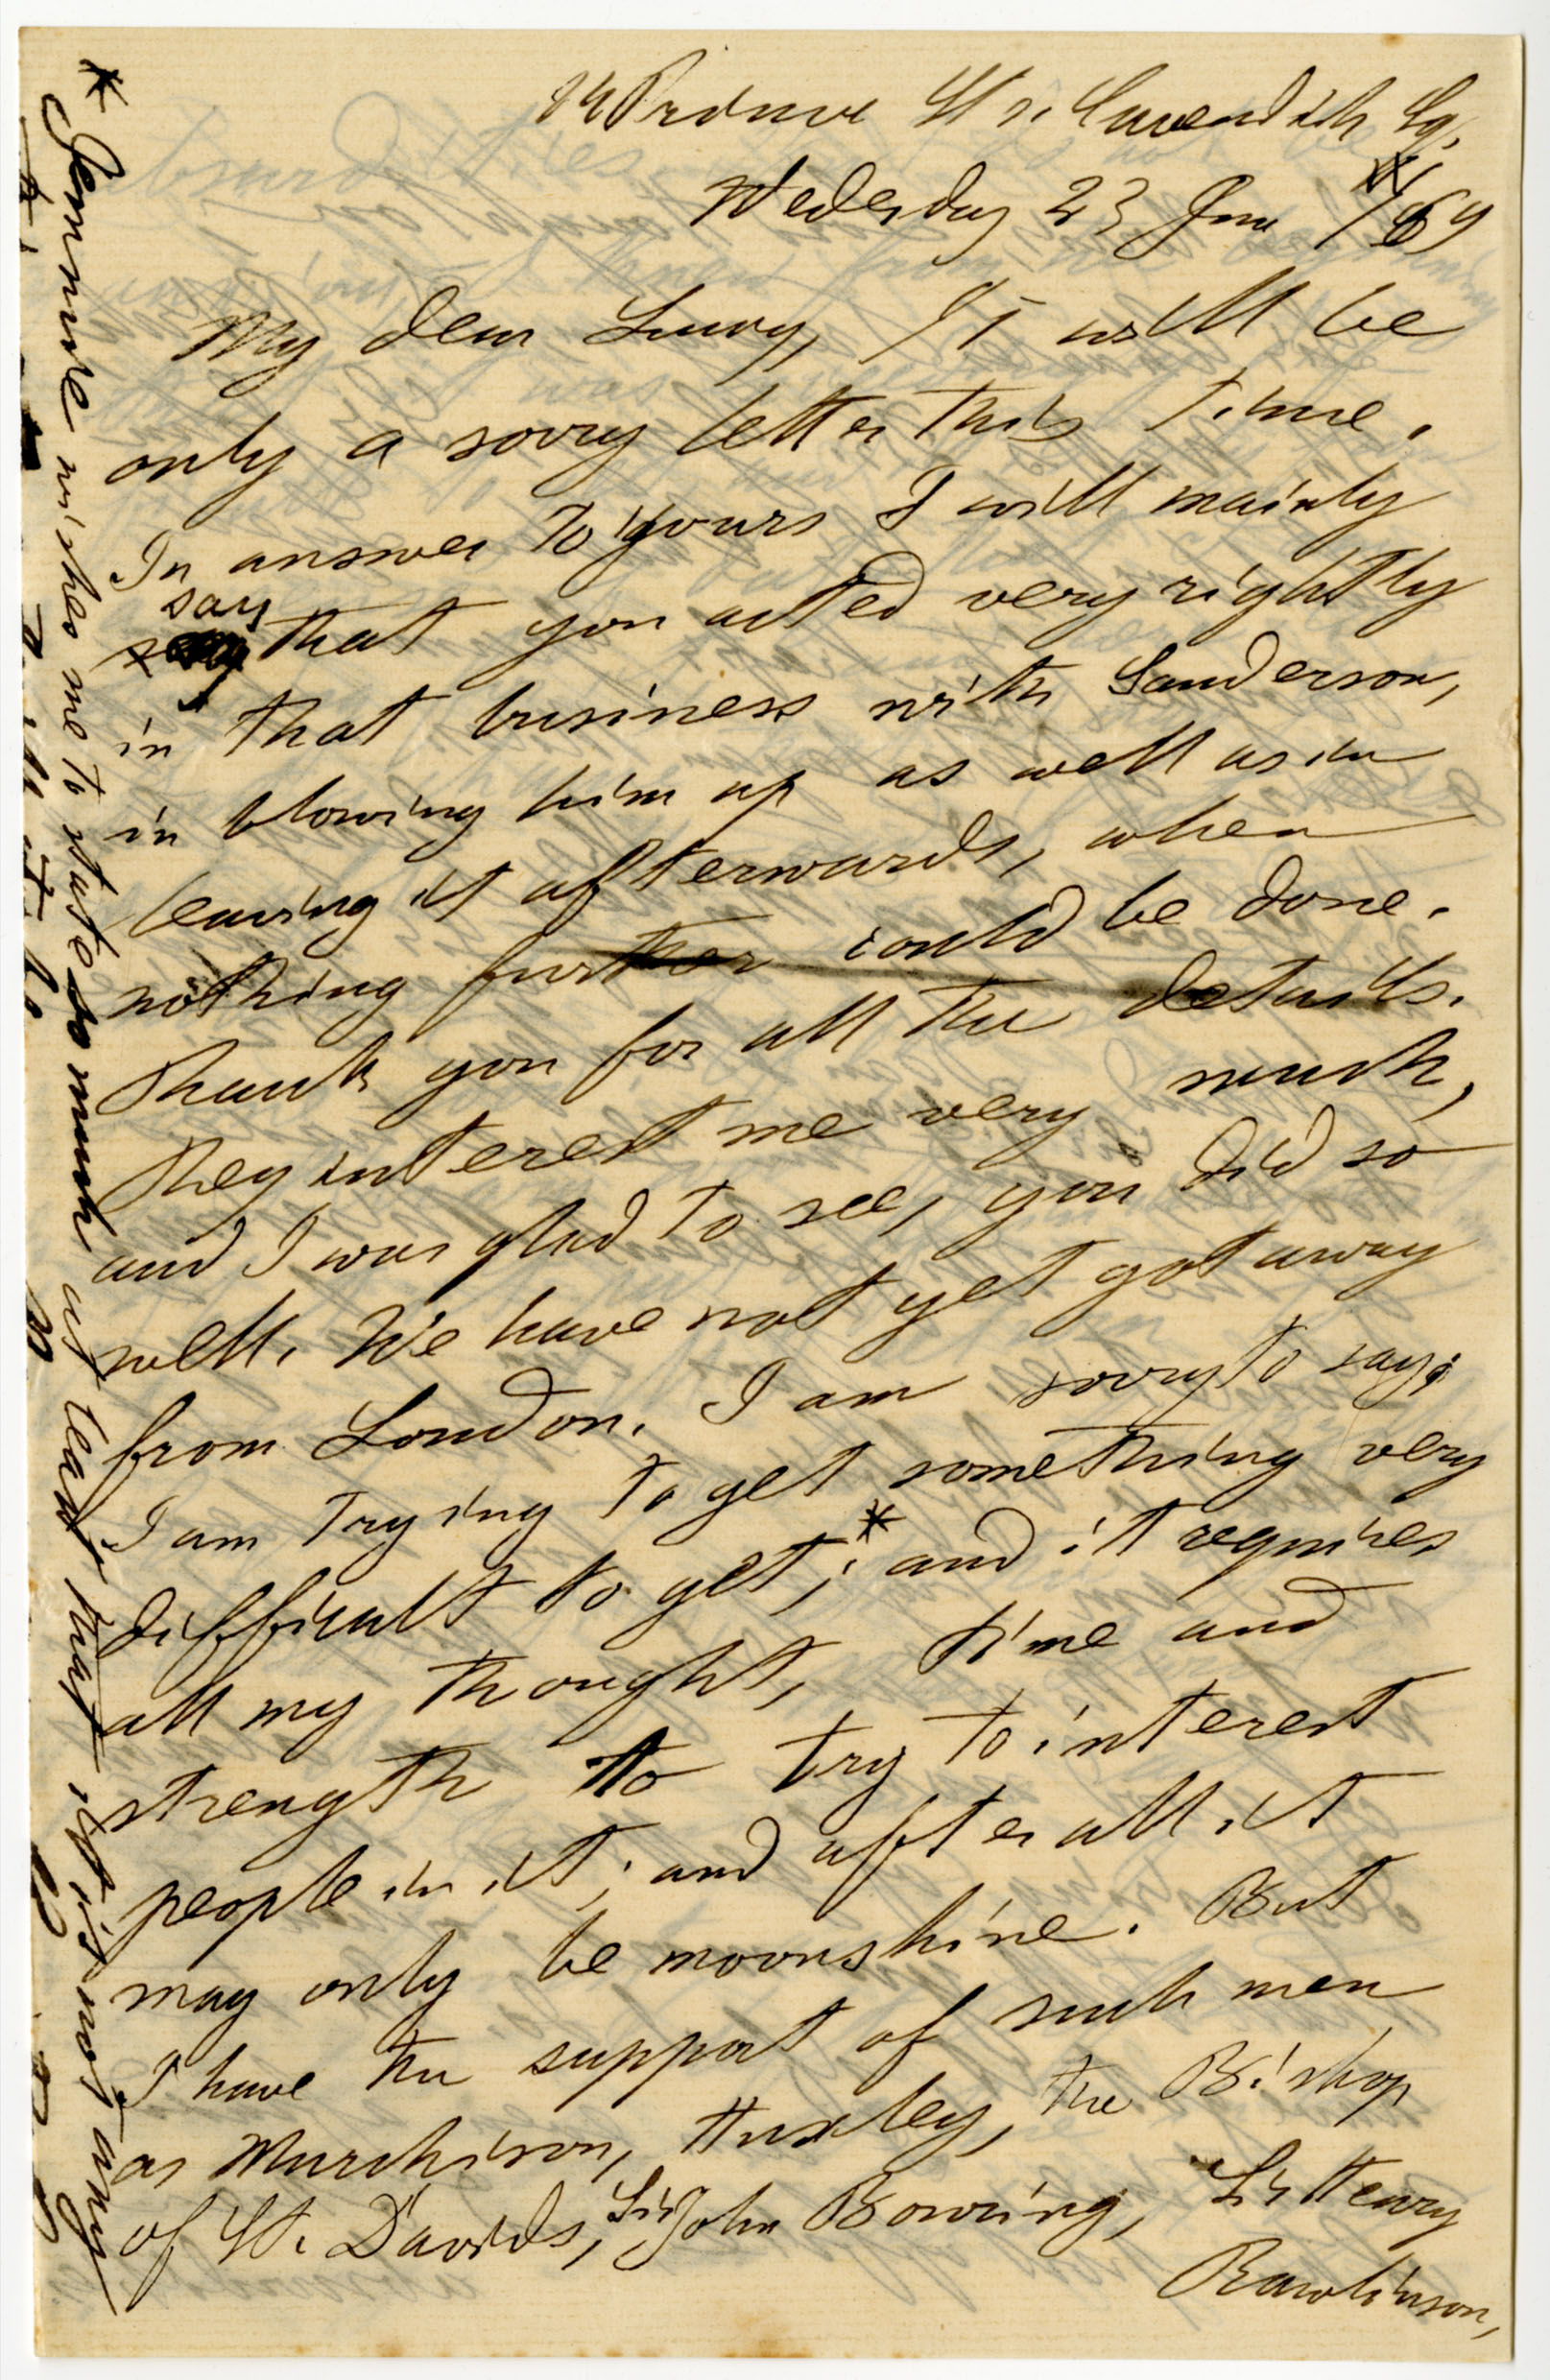 Cavendish Sq.
Wedesday 23 June /69
My dear Lucy, It will be
only a sorry letter this time.
In answer to yours I will mainly
say
that you acted very rightly
in that business with Sanderson,
in blowing him up as well as in
leaving it afterwards, when
nothing further could be done.
Thank you for all the details.
They interest me very much,
and I was glad to see, you did so
well. We have not yet got away
from London. I am sorry to say;
I am trying to get something very
difficult to get;* and it requires
all my thought, time and
strength to try to interest
people in it; and after all it
may only be moonshine. But
I have the support of such men
as Murchison, Huxley, the Bishop
of St. Davids, Sir John Bowring, Sir Henry
Rawlinson,
* Jennure wishes me to state so much at least that it is not any